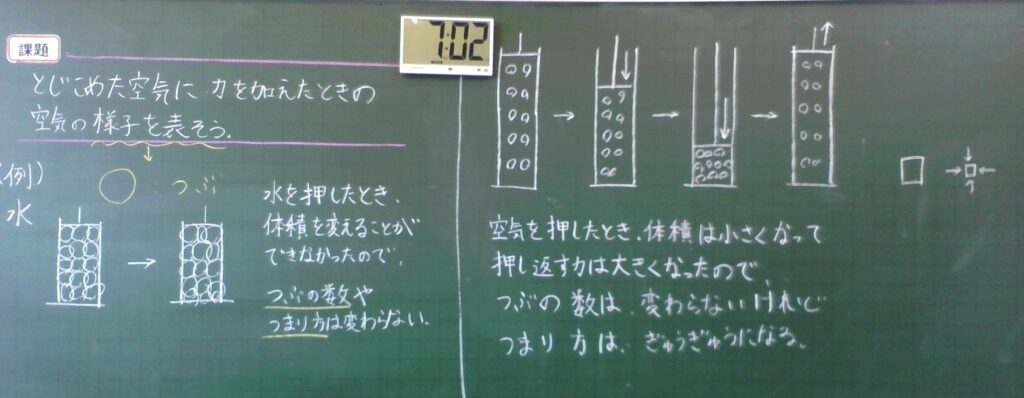 課題
7:02
とじこめた空気に力を加えたときの
空気の様子を表そう。
(例)
水
○:つぶ
水を押したとき、
体積を変えることが
できなかったので、
つぶの数や
つまり方は変わらない。
空気を押したとき、体積は小さくなって
押し返す力は大きくなったので、
つぶの数は、変わらないけれど
つまり方は、ぎゅうぎゅうになる。